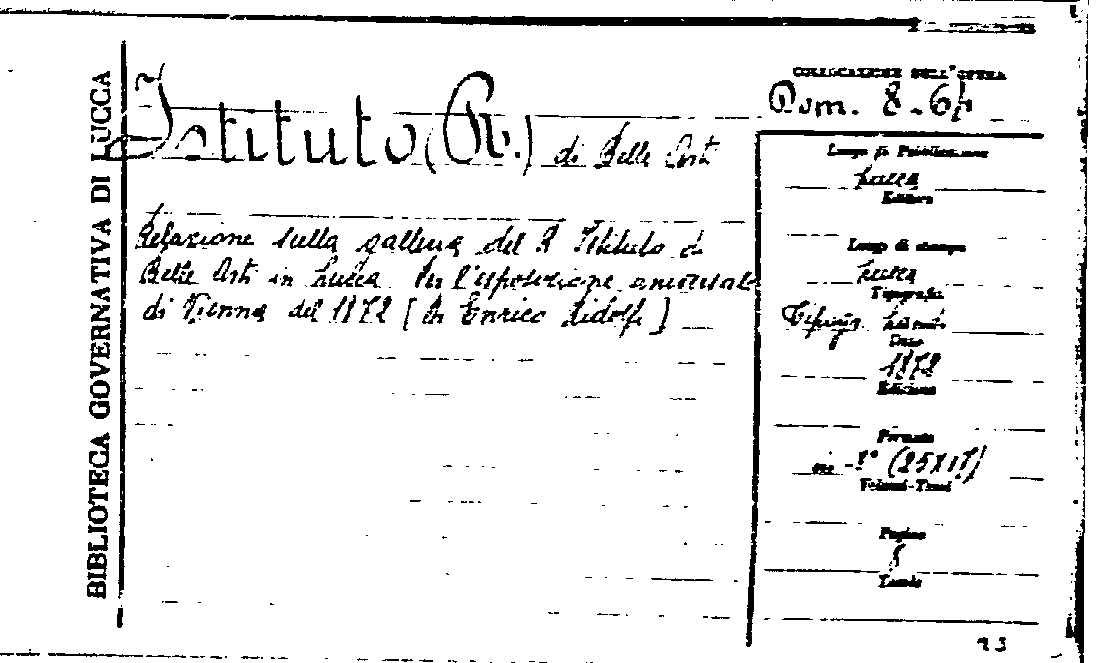 BIBLIOTECA GOVERNATIVA DI LUCCA
Istituto (R.) di Belle Arti
Relazione sulla galleria del R Istituto di
Belle Arti in Lucca Per l'esposizione universale
di Vienna del 1872 [Di Enrico Ridolfi]
COLLOCAZIONE DELL'OPERA
Dom. 8-6
Luogo di Pubblicazione
Lucca
Editore
Luogo di stampa
Lucca
Tipografia
Tipogr.
Data
1872
Edizione
Formato
in-8° (25X17)
Volumi-Tomi
Pagine
8
Tavole